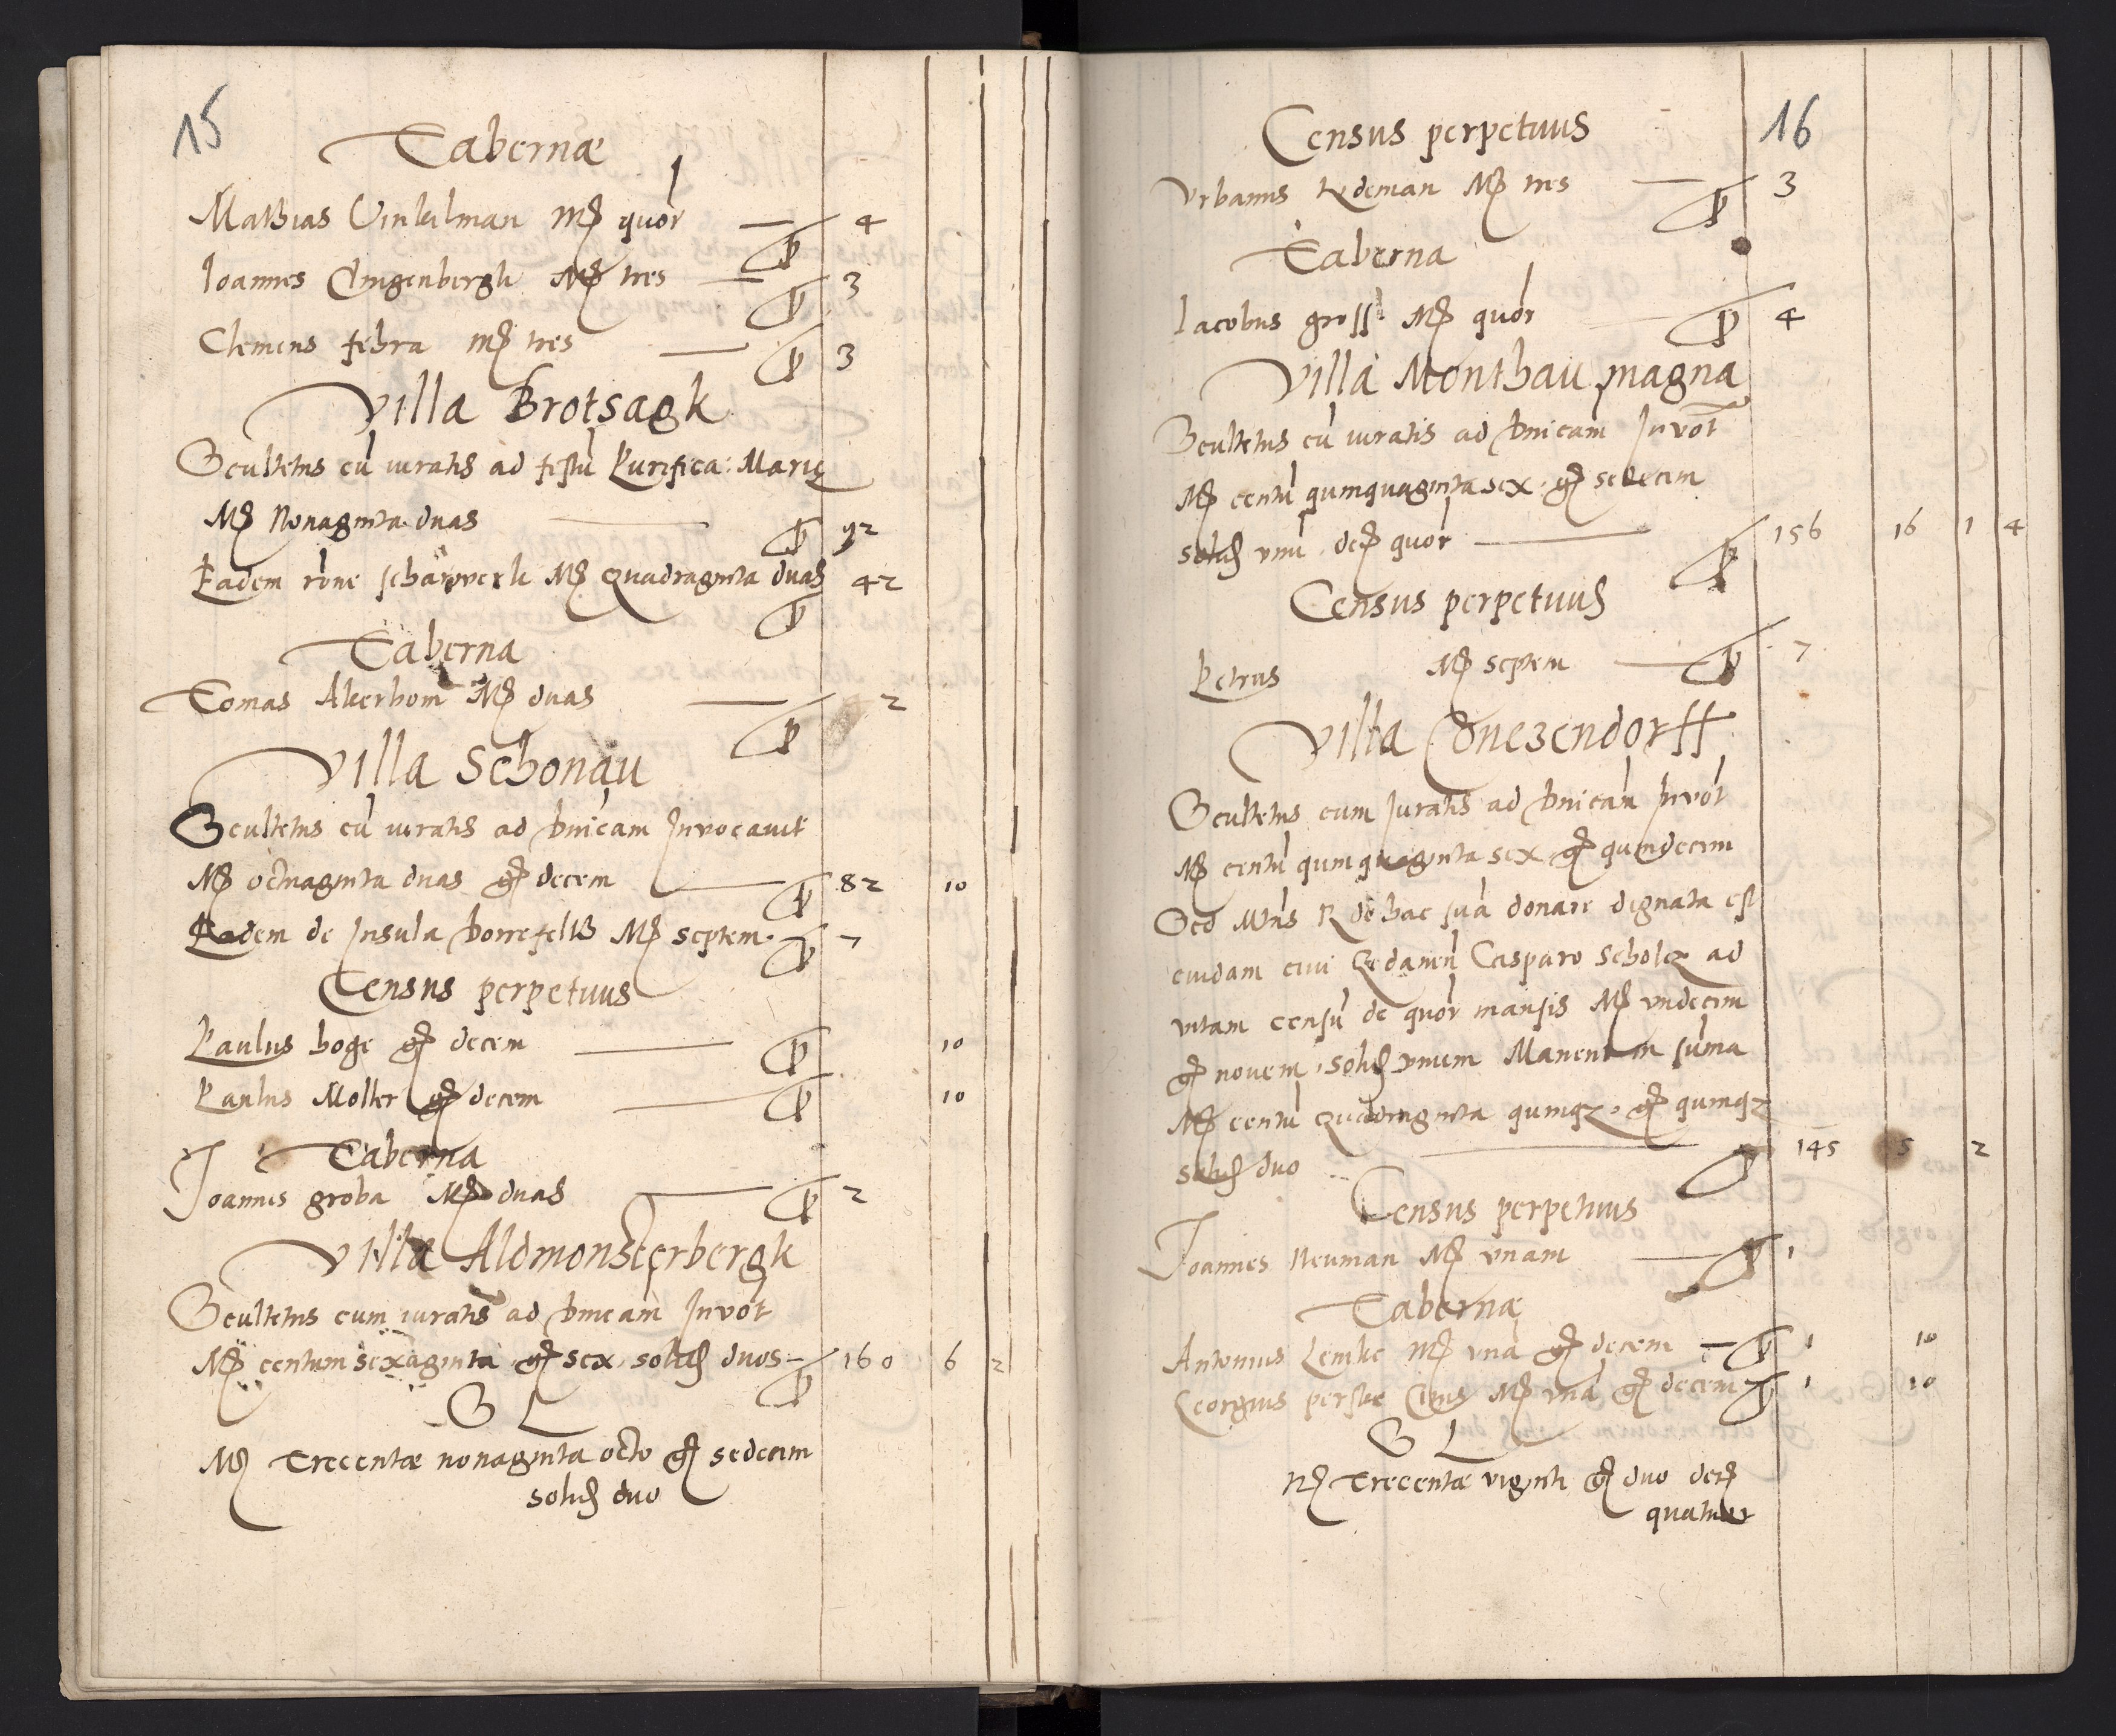 15
Tabernæ
Mathias Vinkelman Mꝭ quor 4
Ioannes Clingenbergk Mꝭ tres 3
Clemens febra mꝭ tres 3
Villa Brotsagk
Scultetus cū iuratis ad festū Purifica: Marię
Mꝭ Nonaginta duas 92
Eadem rōne scharwerk Mꝭ Quadraginta duas 42
Taberna
Tomas Akerbom Mꝭ duas 2
Villa Schonau
Scultetus cū iuratis ad dnicam Invocauit
Mꝭ octuaginta duas gꝭ decem 82 10
Eadem de Insula Mꝭ septem 7
Census perpetuus
Paulus boge gꝭ decem 10
Paulus Molter gꝭ decem 10
Taberna
Joannes groba Mꝭ duas 2
Villa Aldmonsterbergk
Scultetus cum iuratis ad dnicam Invōt
Mꝭ centum sexaginta gꝭ sex solidꝭ duos 160 6 2
S L
Mꝭ Trecentæ nonaginta octo gꝭ sedecim
solidꝭ duo
16
Census perpetuus
Vrbanus Mꝭ tres 3
Taberna
Iacobus gross Mꝭ quor 4
Villa Monthau magna
Scultetus cū iuratis ad dnicam Invōt
Mꝭ centū quinquaginta sex gꝭ sedecim
solidꝭ vnū deꝭ quor 156 16 1 4
Census perpetuus
Petrus Mꝭ septem 7
Villa Gnezendorff
Scultetus cum Juratis ad dnicam Invōt
Mꝭ centū quinquaginta sex gꝭ quindecim
Sed Mtas R de hac sua donare dignata est
cuidam ciui Gedanen Casparo Scholcz ad
vitam censū de quor mansis Mꝭ vndecim
gꝭ novem solidꝭ vnum Manent in suma
Mꝭ centū quadraginta quinqz gꝭ quinqz
solidꝭ duo 145 5 2
Census perpetuus
Joannes Neuman Mꝭ vnam 1
Tabernę
Antonius Lemke Mꝭ vnā gꝭ decem 1 10
Georgius Mꝭ vnā gꝭ decem 1 10
S L
Mꝭ Trecentæ viginti gꝭ duo deꝭ
quatuor